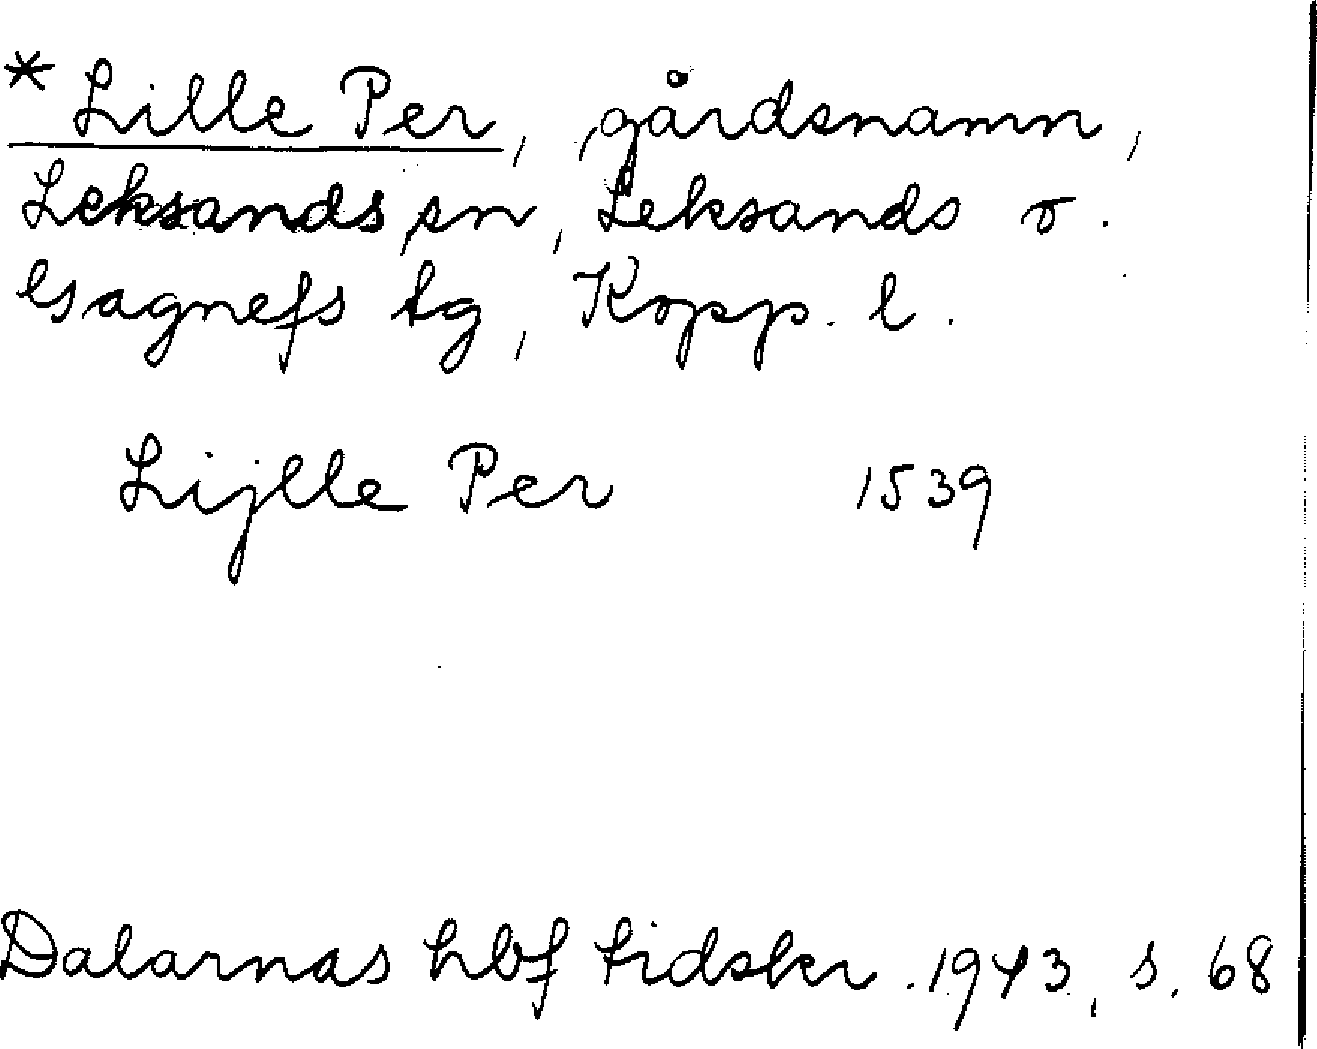 * Lille Per, gårdsnamn,
Leksands sn, Leksands o.
Gagnefs tg, Kopp. l.
Lijlle Per 1539
Dalarnas hbf tidskr. 1943, s. 68